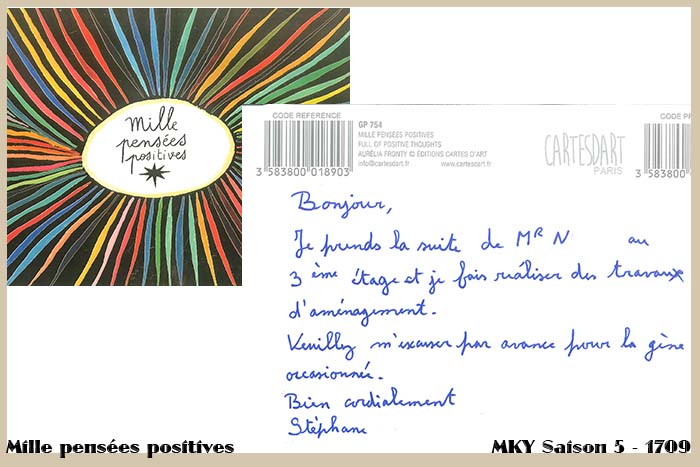 Mille
pensées
positives
CODE REFERENCE
3 583800 018903
GP 754
MILLE PENSÉES POSITIVES
FULL OF POSITIVE THOUGHTS
AURÉLIA FRONTY © ÉDITIONS CARTES D'ART
info@cartesdart.fr www.cartesdart.fr
CARTESDART
PARIS
CODE PR
3 583800
Bonjour,
Je prends la suite de MR N au
3 ème étage et je fais réaliser des travaux
d'aménagement.
Veuillez m'excuser par avance pour la gêne
occasionnée.
Bien cordialement
Stéphane
Mille pensées positives
MKY Saison 5 - 1709